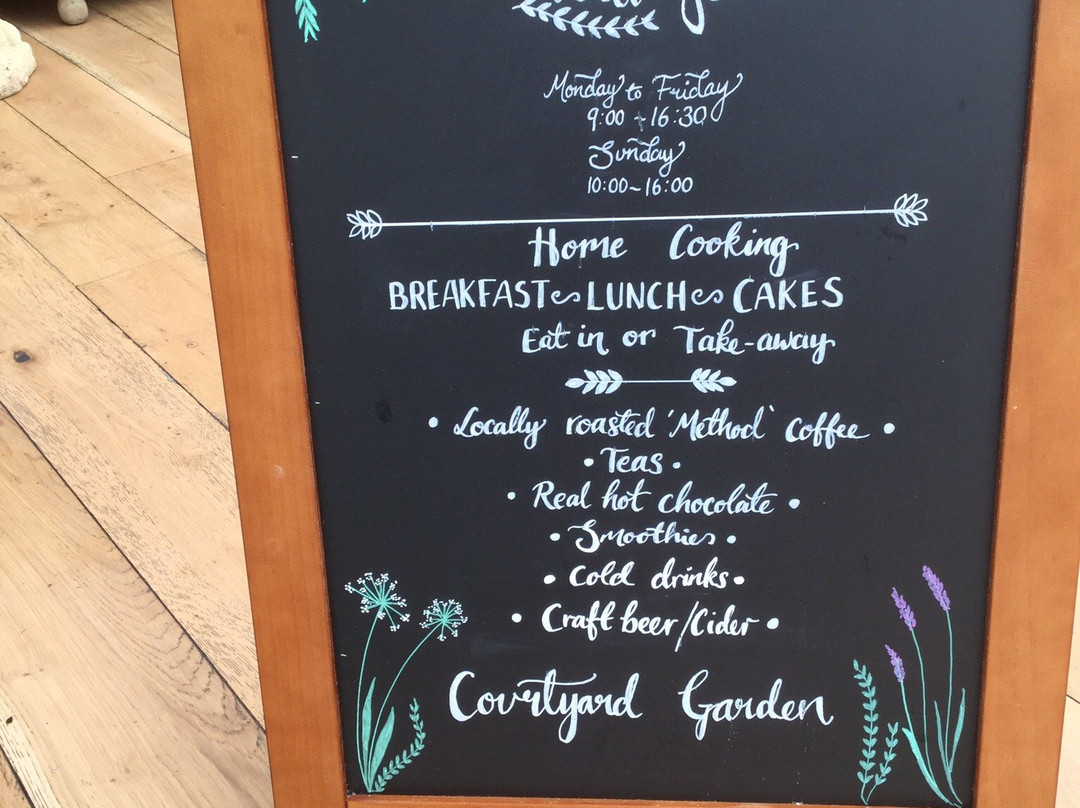 Monday to Friday
9:00 - 16:30
Sunday
10:00 ~ 16:00
Home Cooking
BREAKFAST ~ LUNCH ~ CAKES
Eat in or Take-away
• Locally roasted 'Method' coffee •
• Teas •
• Real hot chocolate •
• Smoothies •
• Cold drinks •
• Craft beer/Cider •
Courtyard Garden